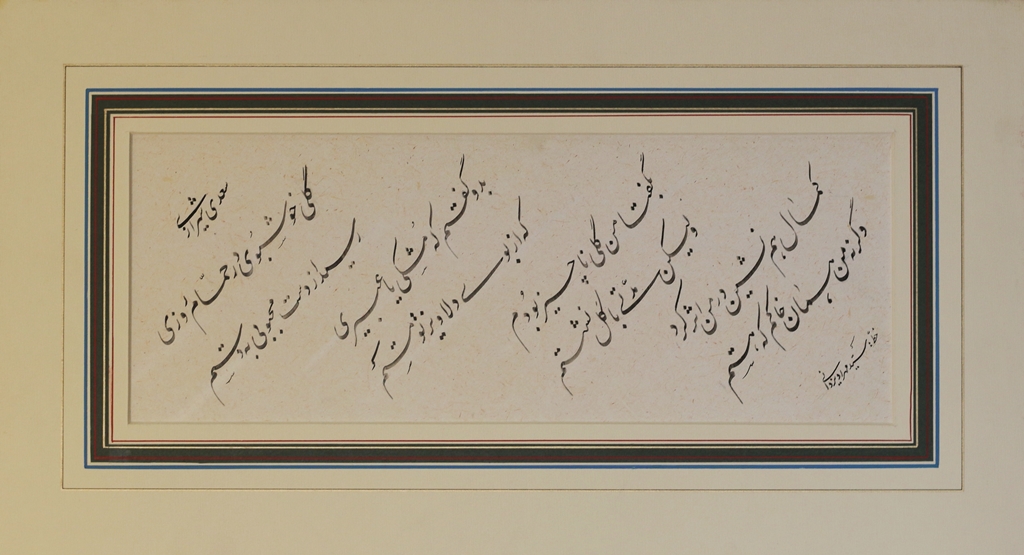 سعدی شیرازی
گلی خوشبوی در حمّام روزی
رسید از دست محبوبی به دستم
بدو گفتم که مُشکی یا عبیری
که از بوی دلاویز تو مستم
بگفتا من گلی ناچیز بودم
ولیکن مدّتی با گل نشستم
کمال همنشین در من اثر کرد
وگرنه من همان خاکم که هستم
خط: سید